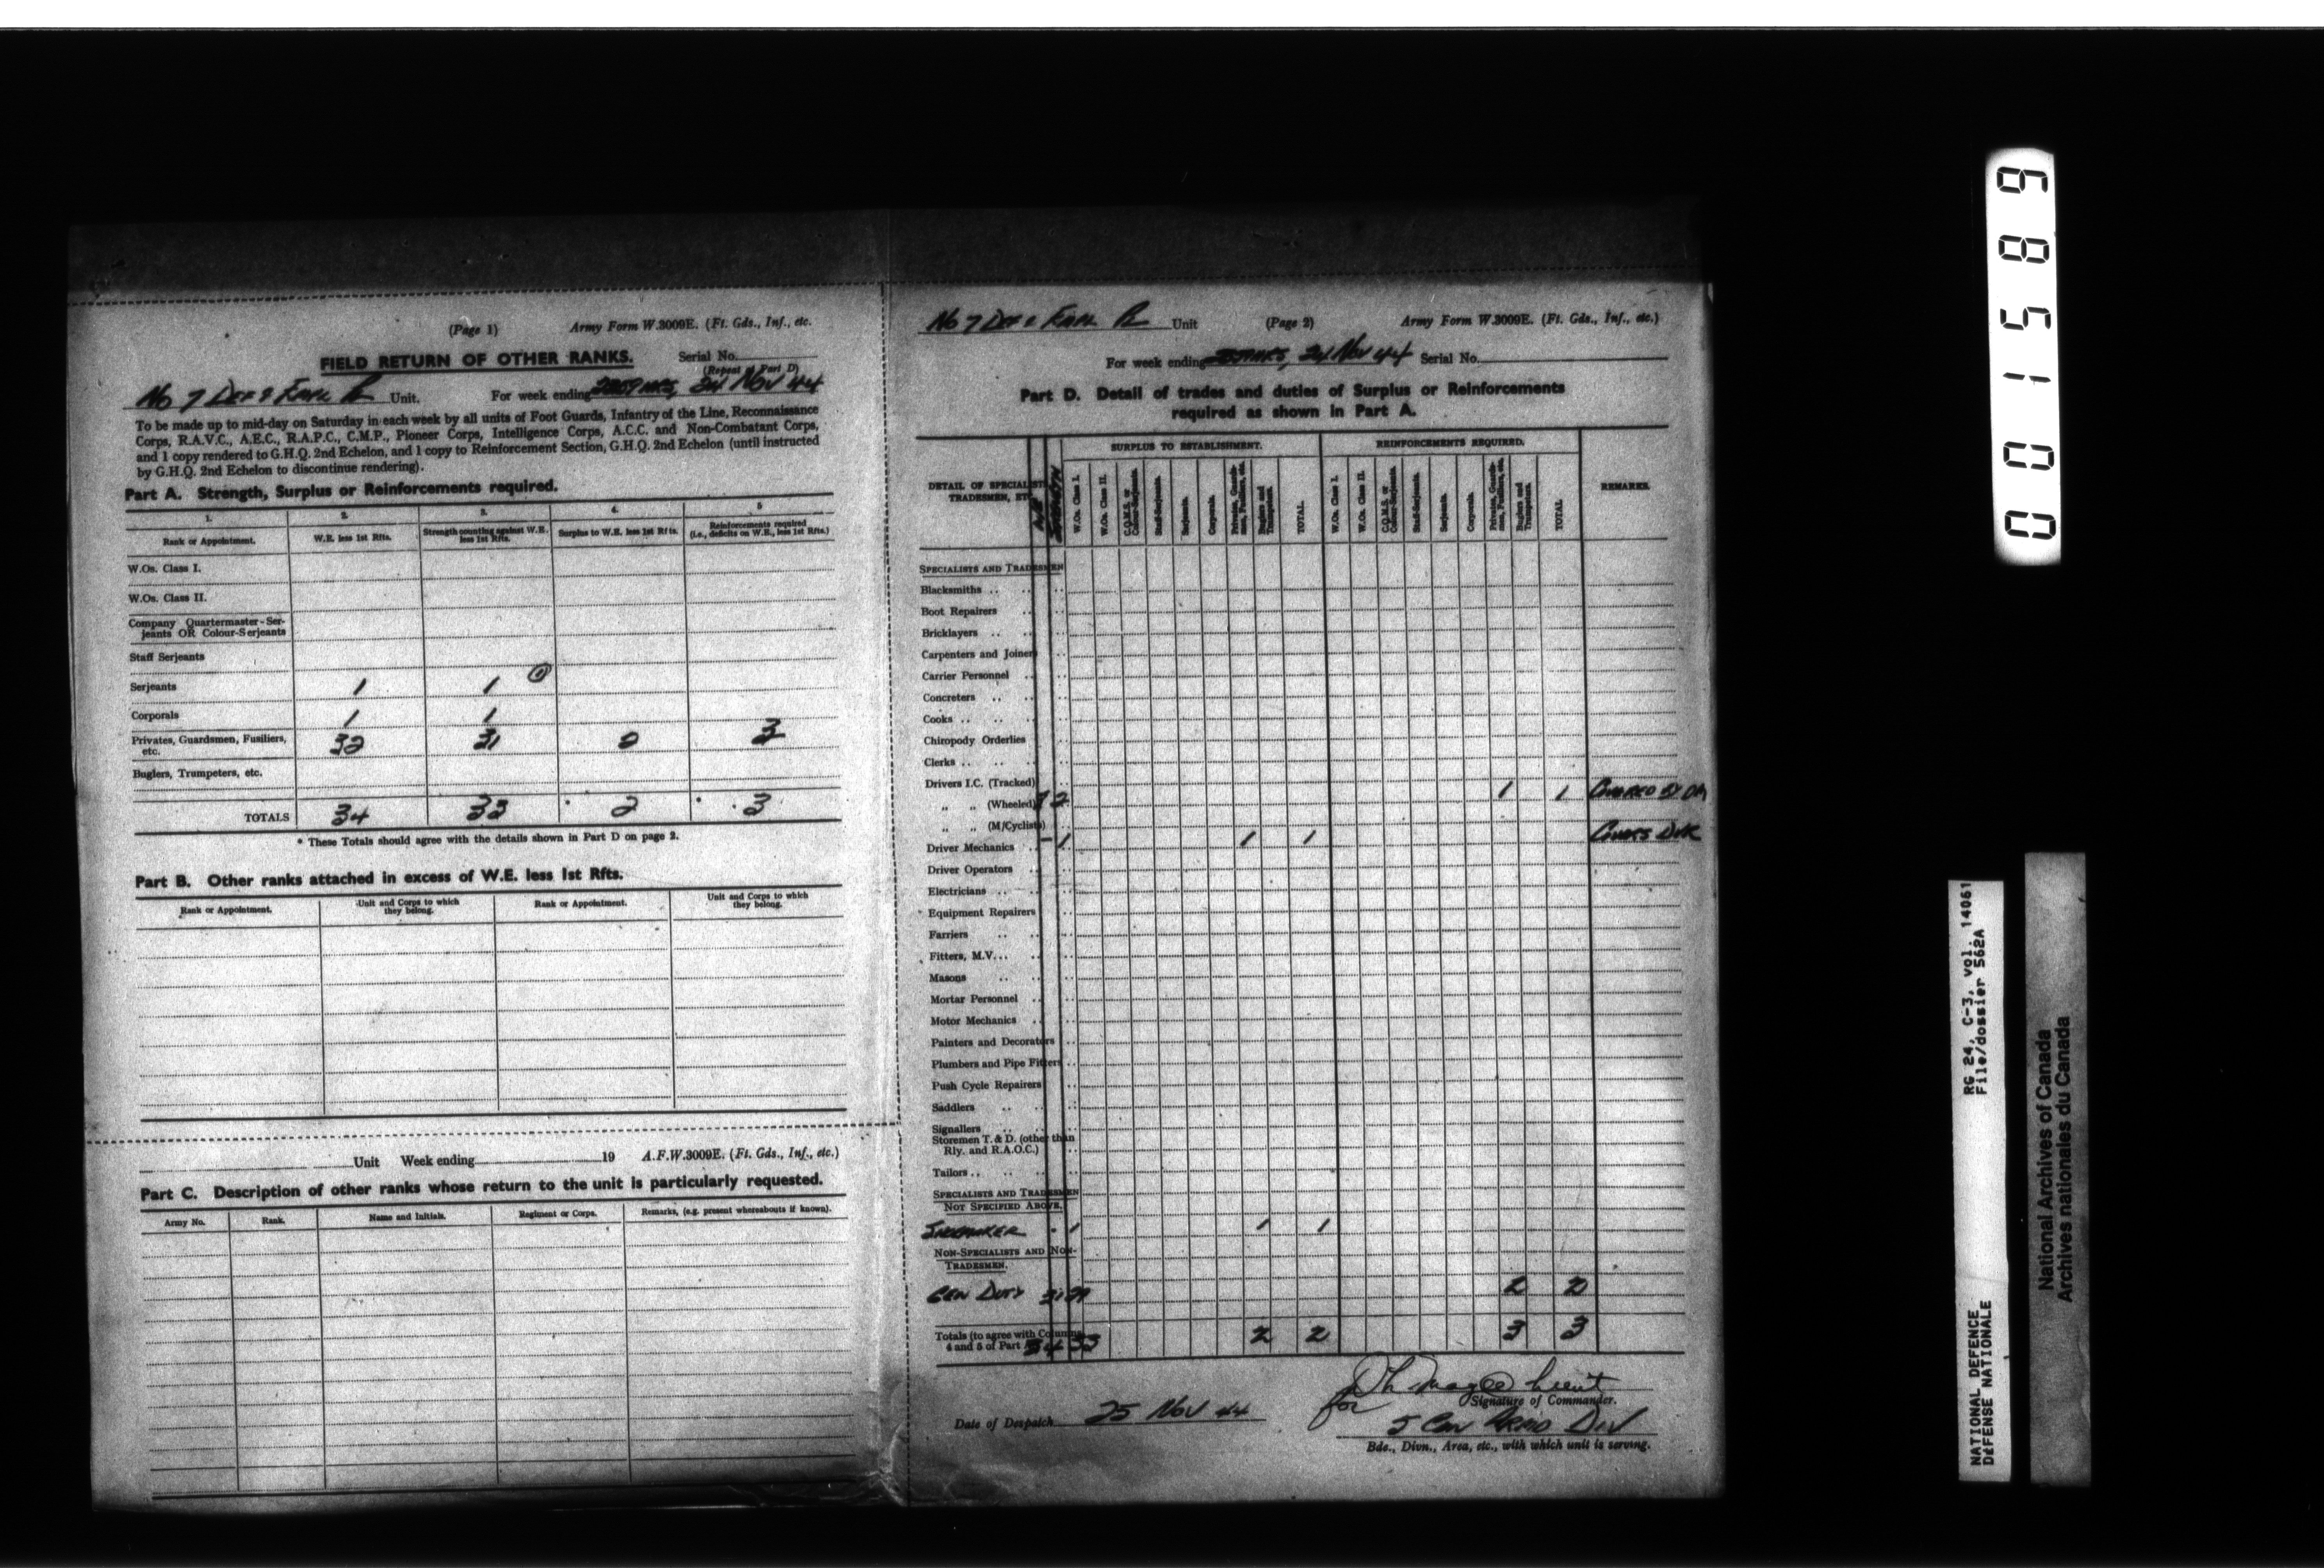 (Page 1) Army Form W.3009E. (Ft. Gds., Inf., etc.
FIELD RETURN OF OTHER RANKS. Serial No.
(Repeat of Part D)
No 7 DEF & EMPL PL Unit. For week ending 2359 HRS, 24 NOV 44
To be made up to mid-day on Saturday in each week by all units of Foot Guards, Infantry of the Line, Reconnaissance
Corps, R.A.V.C., A.E.C., R.A.P.C., C.M.P., Pioneer Corps, Intelligence Corps, A.C.C. and Non-Combatant Corps,
and 1 copy rendered to G.H.Q. 2nd Echelon, and 1 copy to Reinforcement Section, G.H.Q. 2nd Echelon (until instructed
by G.H.Q. 2nd Echelon to discontinue rendering).
Part A. Strength, Surplus or Reinforcements required.
1. 2. 3. 4. 5
Rank or Appointment. W.E. less 1st Rfts. Strength counting against W.E. less 1st Rfts. Surplus to W.E. less 1st Rfts. Reinforcements required (i.e., deficits on W.E., less 1st Rfts.)
W.Os. Class I.
W.Os. Class II.
Company Quartermaster-Ser-
jeants OR Colour-Serjeants
Staff Serjeants
Serjeants 1 1
Corporals 1 1
Privates, Guardsmen, Fusiliers, etc. 32 31 2 3
Buglers, Trumpeters, etc.
TOTALS 34 33 * 2 * 3
* These Totals should agree with the details shown in Part D on page 2.
Part B. Other ranks attached in excess of W.E. less 1st Rfts.
Rank or Appointment. Unit and Corps to which they belong. Rank or Appointment. Unit and Corps to which they belong.
Unit Week ending 19 A.F.W.3009E. (Ft. Gds., Inf., etc.)
Part C. Description of other ranks whose return to the unit is particularly requested.
Army No. Rank. Name and Initials. Regiment or Corps. Remarks, (e.g. present whereabouts if known).
No 7 DEF & EMPL PL Unit (Page 2) Army Form W.3009E. (Ft. Gds., Inf., etc.)
For week ending 2359 HRS, 24 NOV 44 Serial No.
Part D. Detail of trades and duties of Surplus or Reinforcements
required as shown in Part A.
SURPLUS TO ESTABLISHMENT. REINFORCEMENTS REQUIRED.
DETAIL OF SPECIALISTS, TRADESMEN, ETC. W.Os. Class I. W.Os. Class II. C.Q.M.S. or Colour-Serjeants. Staff-Serjeants. Serjeants. Corporals. Privates, Guardsmen, Fusiliers, etc. Buglers and Trumpeters. TOTAL. W.Os. Class I. W.Os. Class II. C.Q.M.S. or Colour-Serjeants. Staff-Serjeants. Serjeants. Corporals. Privates, Guardsmen, Fusiliers, etc. Buglers and Trumpeters. TOTAL. REMARKS.
SPECIALISTS AND TRADESMEN
Blacksmiths
Boot Repairers
Bricklayers
Carpenters and Joiners
Carrier Personnel
Concreters
Cooks
Chiropody Orderlies
Clerks
Drivers I.C. (Tracked)
" " (Wheeled) 2 1 1 COVERED BY DM
" " (M/Cyclists)
Driver Mechanics - 1 1 1 COVERS DVR
Driver Operators
Electricians
Equipment Repairers
Farriers
Fitters, M.V.
Masons
Mortar Personnel
Motor Mechanics
Painters and Decorators
Plumbers and Pipe Fitters
Push Cycle Repairers
Saddlers
Signallers
Storemen T. & D. (other than
Rly. and R.A.O.C.)
Tailors
SPECIALISTS AND TRADESMEN
NOT SPECIFIED ABOVE.
SHOEMAKER - 1 1 1
NON-SPECIALISTS AND NON-
TRADESMEN.
GEN DUTY 31 29 2 2
Totals (to agree with Columns
4 and 5 of Part A) 34 33 2 2 3 3
for
Signature of Commander.
Date of Despatch 25 NOV 44
5 CDN ARMD DIV
Bde., Divn., Area, etc., with which unit is serving.
001589
RG 24, C-3, vol. 14061
File/dossier 562A
NATIONAL DEFENCE
DÉFENSE NATIONALE
National Archives of Canada
Archives nationales du Canada